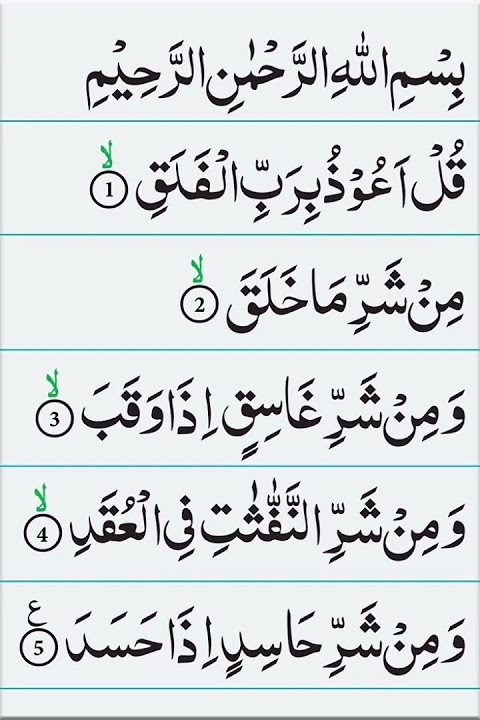 بِسْمِ اللهِ الرَّحْمٰنِ الرَّحِيْمِ
قُلْ اَعُوْذُ بِرَبِّ الْفَلَقِ ۙ 1
مِنْ شَرِّ مَا خَلَقَ ۙ 2
وَمِنْ شَرِّ غَاسِقٍ اِذَا وَقَبَ ۙ 3
وَمِنْ شَرِّ النَّفّٰثٰتِ فِى الْعُقَدِ ۙ 4
وَمِنْ شَرِّ حَاسِدٍ اِذَا حَسَدَ ع 5